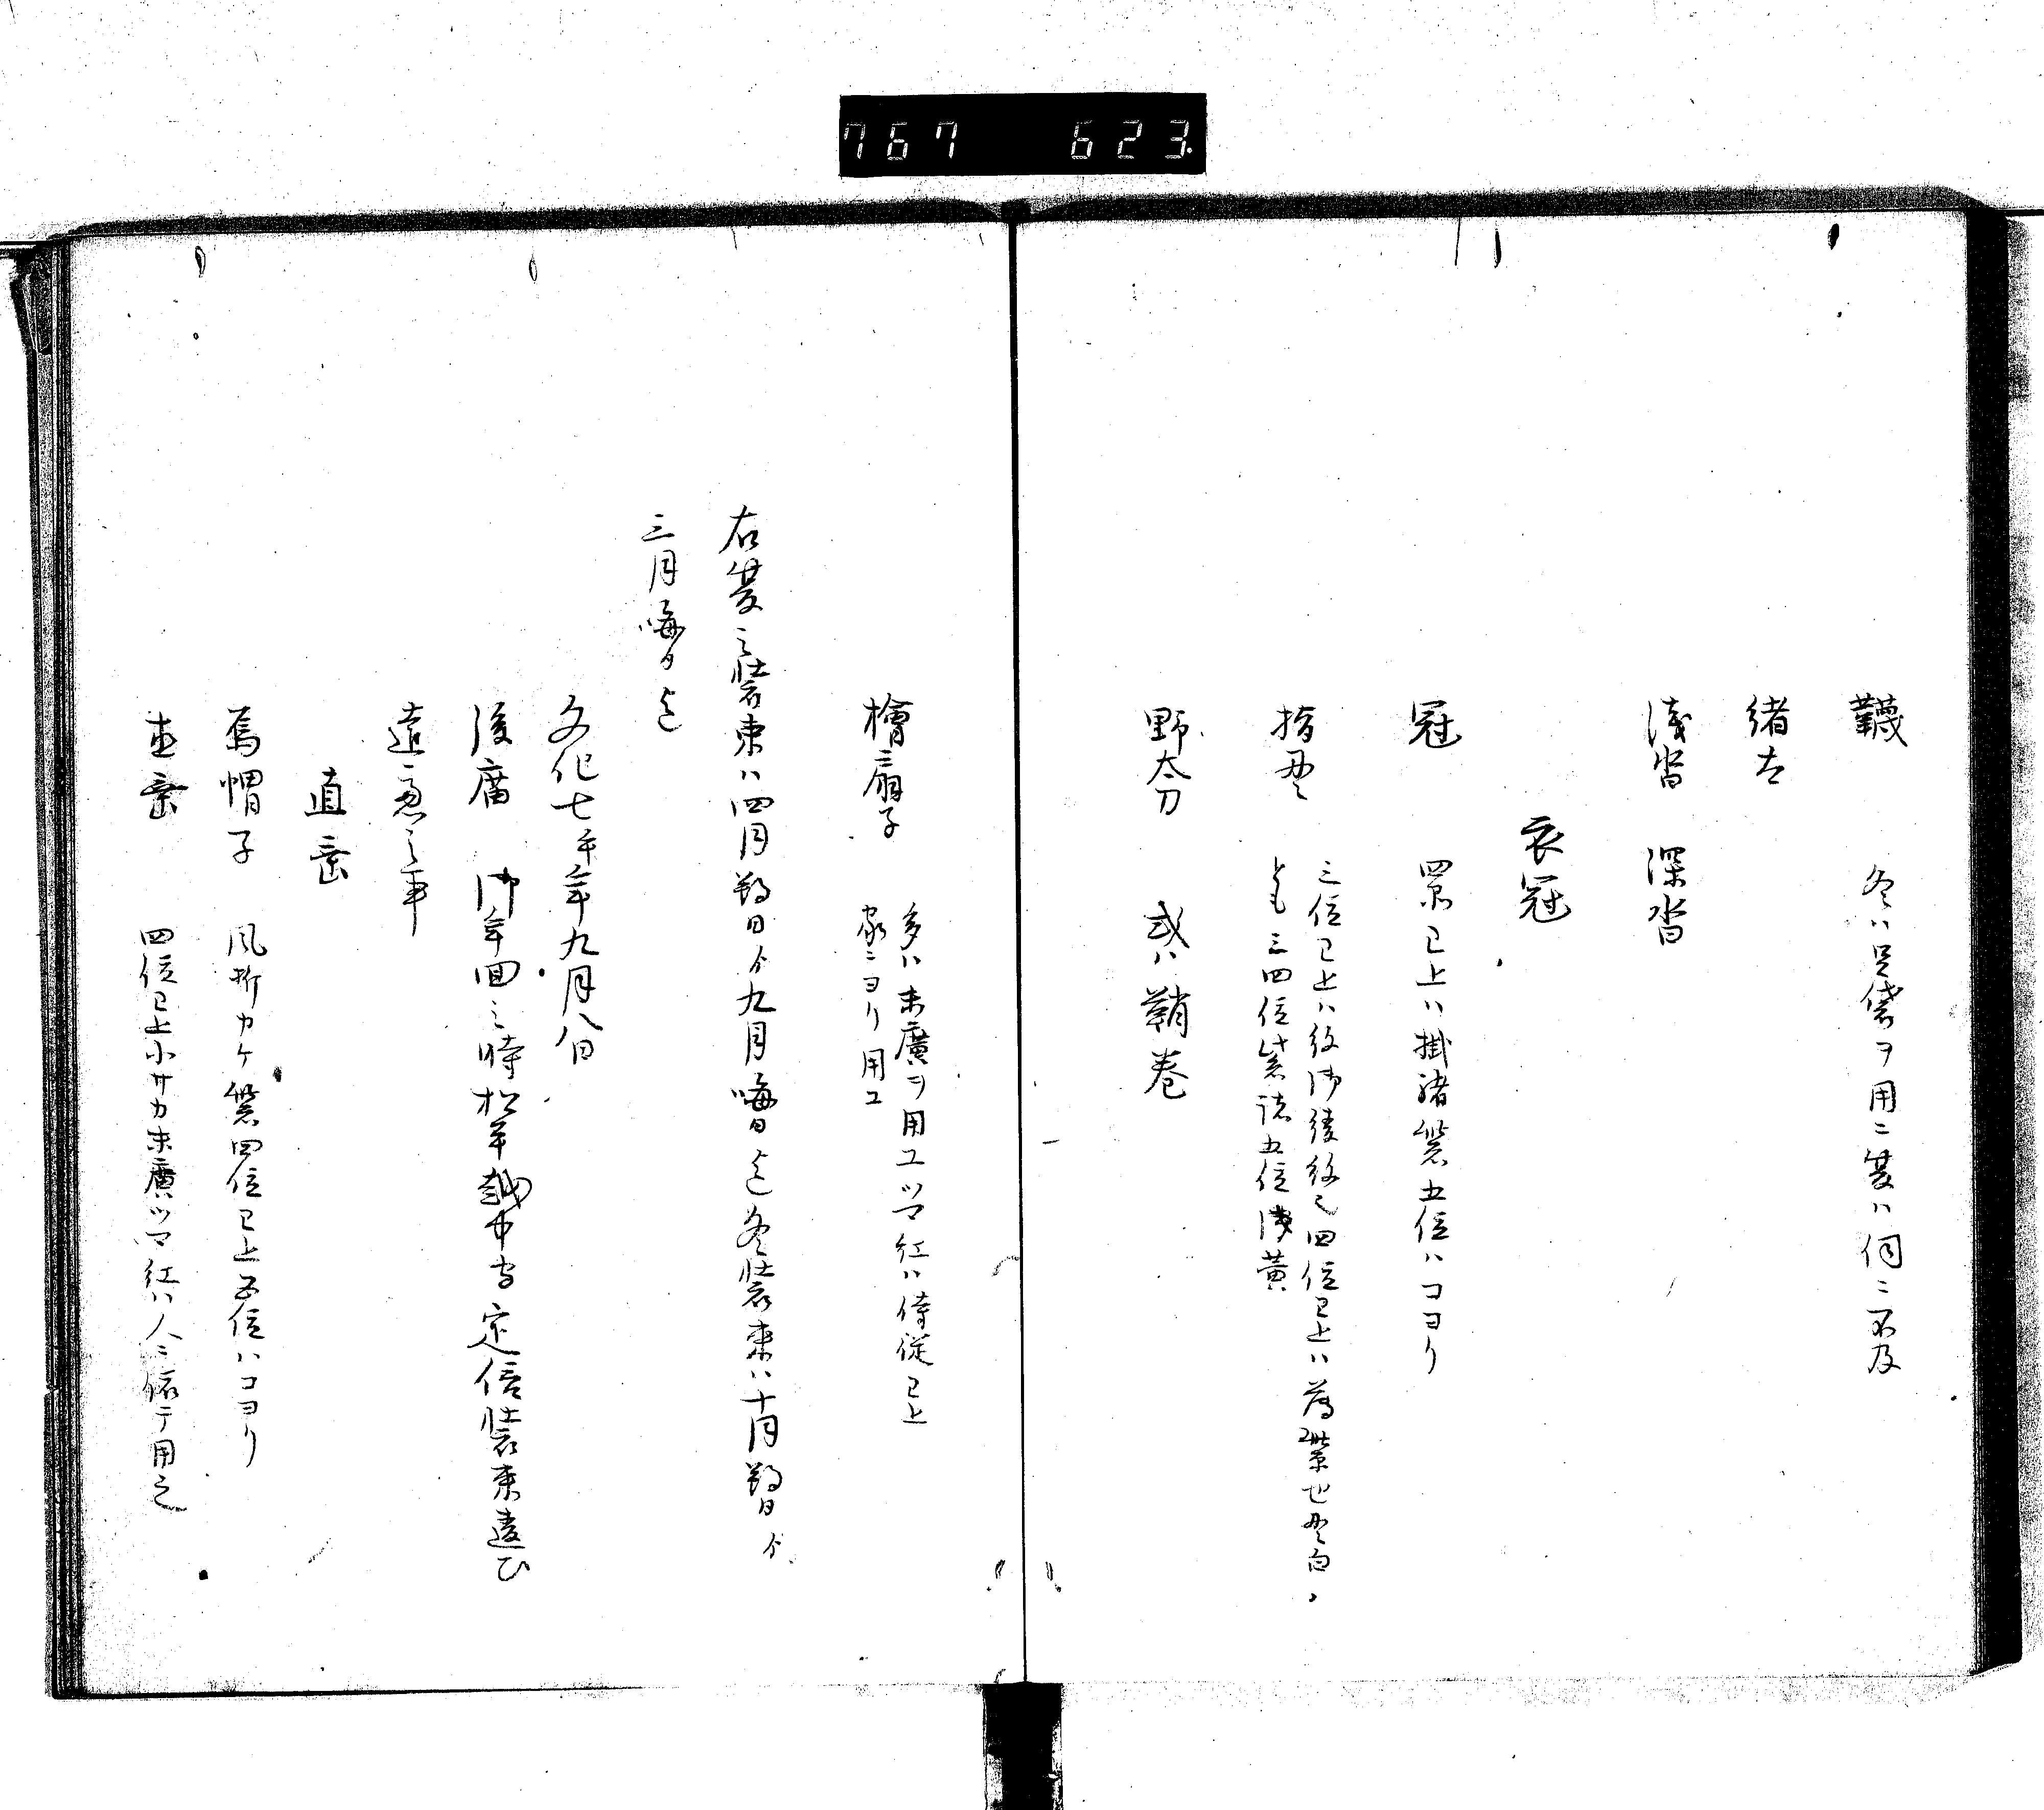 767 623
韈 冬ハ足袋ヲ用ニ夏ハ伺ニ不及
緒太
浅沓 深沓
衣冠
冠 四品已上ハ掛緒紫五位ハコヨリ
指貫 三位已上ハ紋 四位已上ハ薄紫也 白
とも三四位紫 五位浅黄
野太刀 或ハ鞘巻
檜扇子 多ハ末廣ヲ用ユツマ紅ハ侍従已上
家ニヨリ用ユ
右夏之装束ハ四月朔日ゟ九月晦日迄冬装束ハ十月朔日ゟ
三月晦日迄
文化七午年九月八日
後廟 御年回之時松平越中守定信装束違ひ
遠慮之事
直垂
烏帽子 風折カケ紫四位已上五位ハコヨリ
直垂 四位已上小サカ末廣ツマ紅ハ人ニ依テ用之